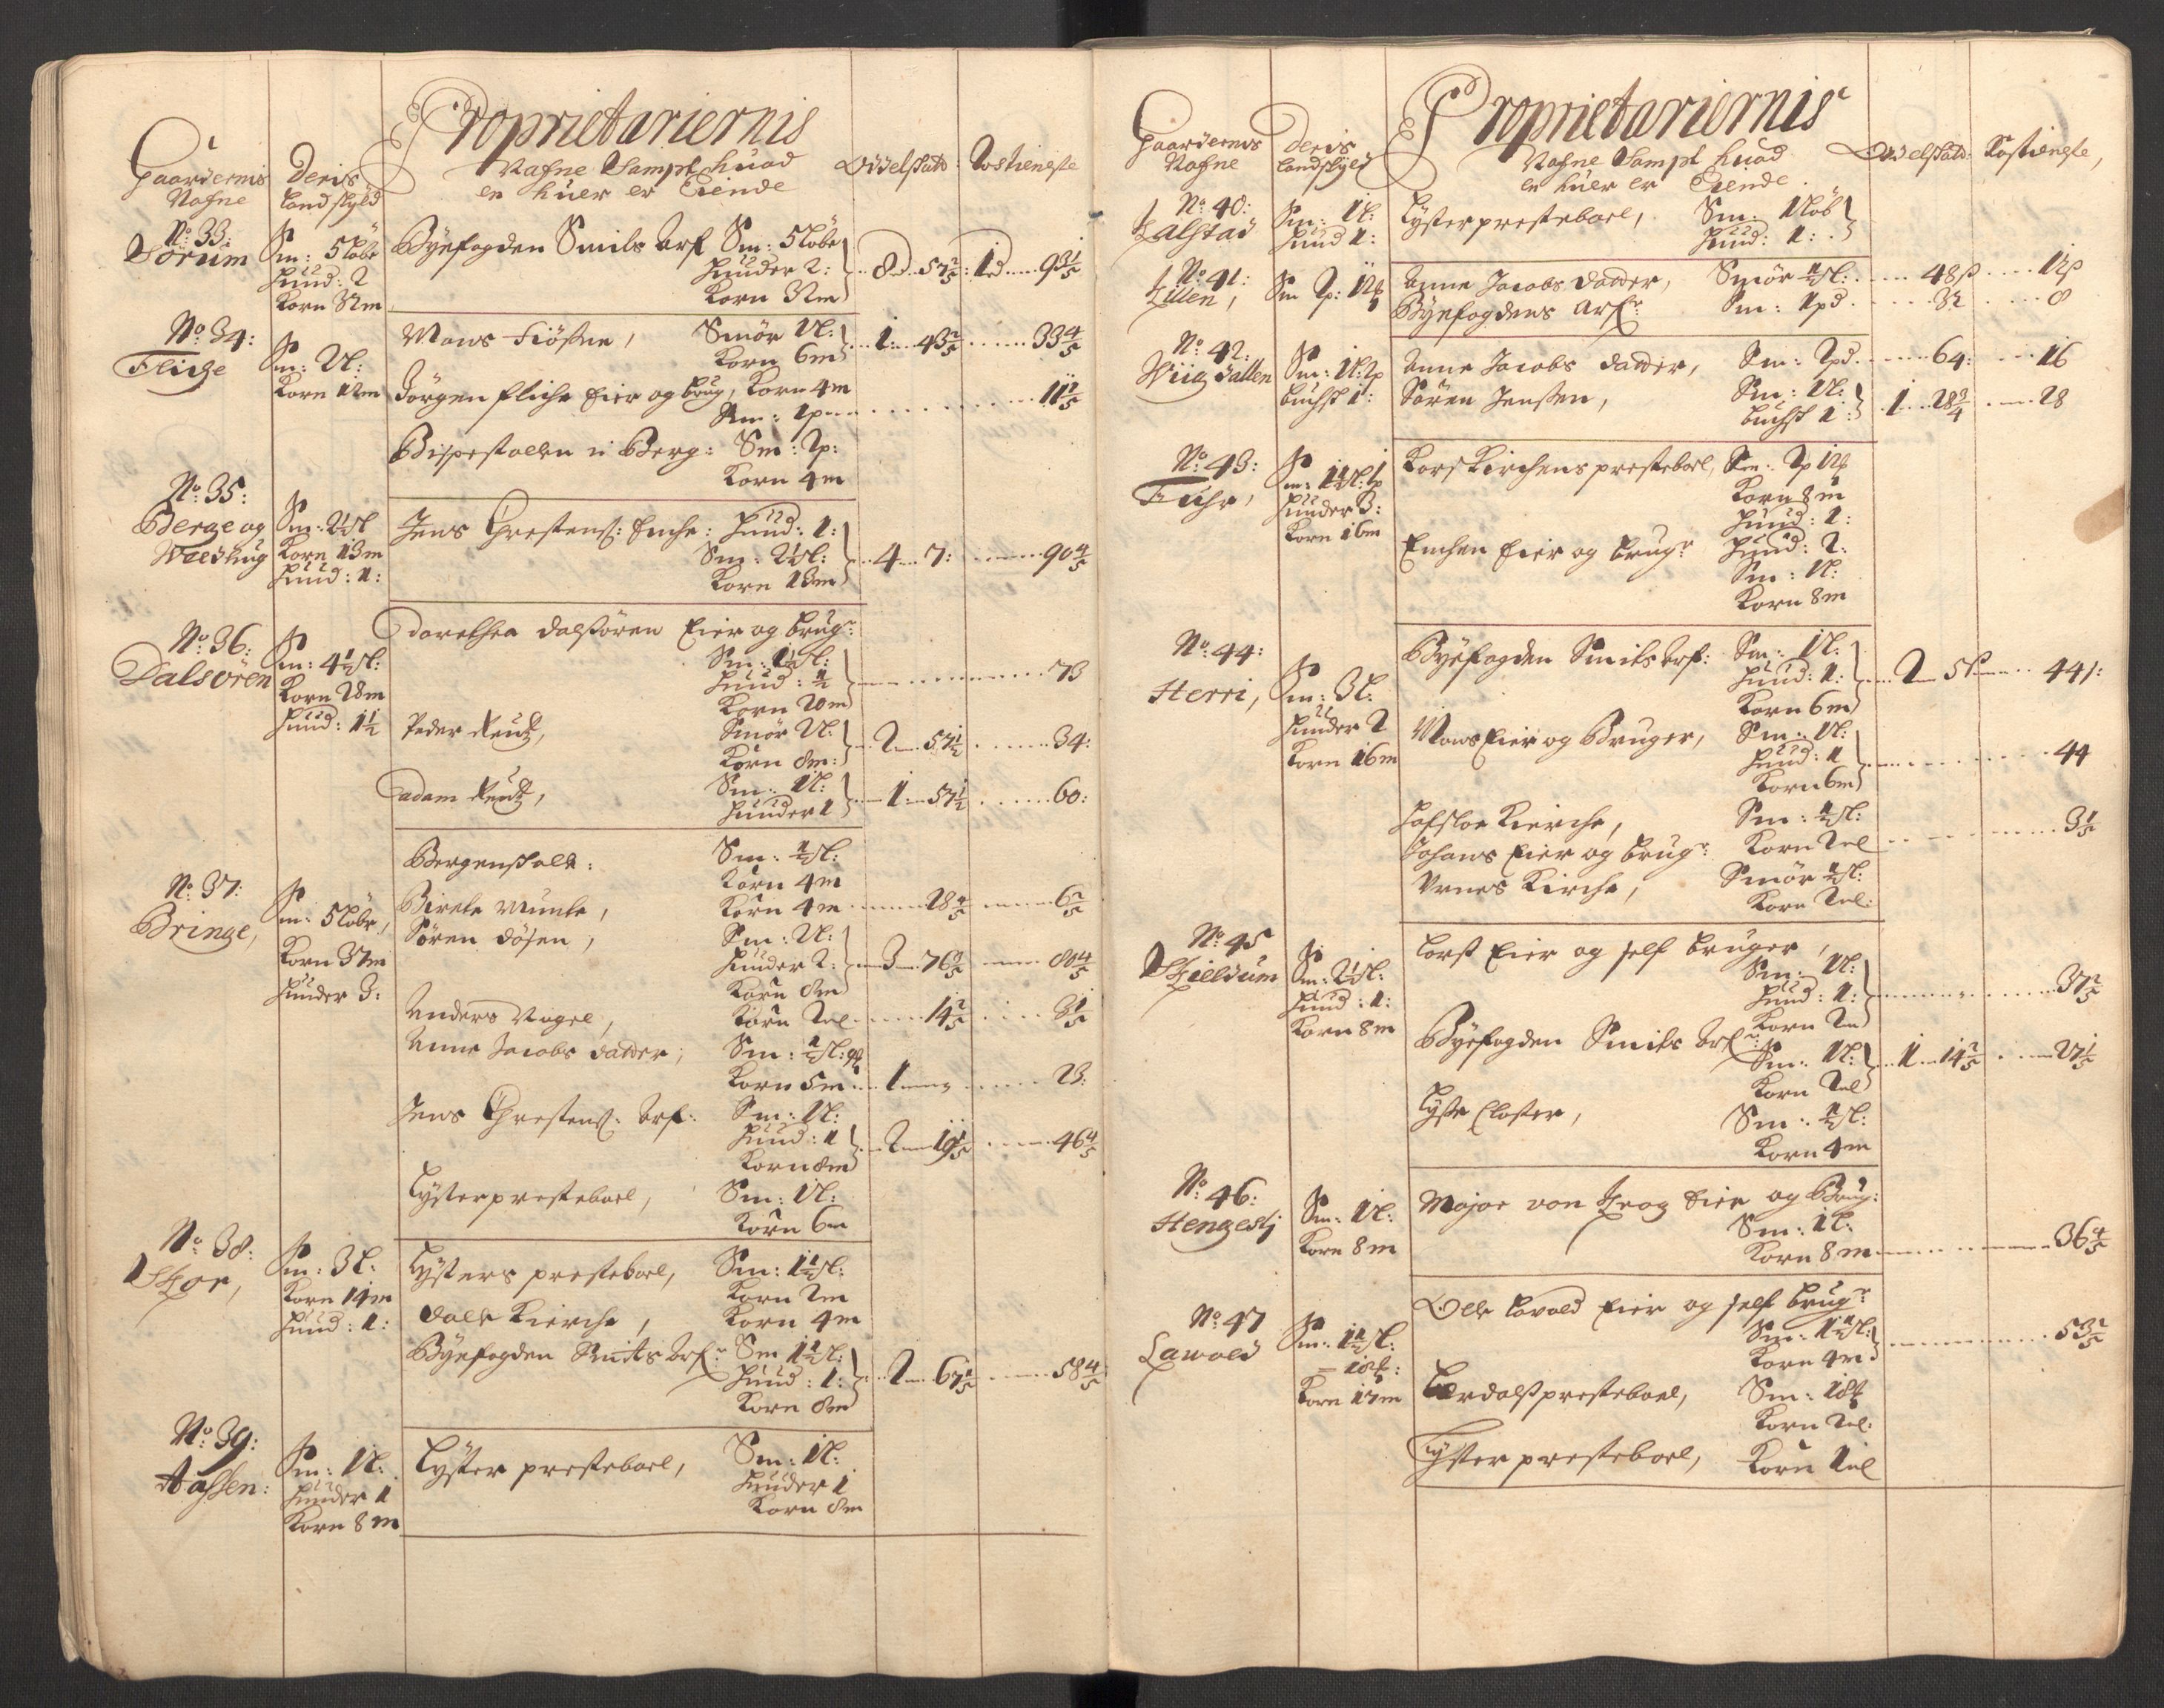 Proprietariernis
Gaardernis Nafne
Deris Landskyld
Nafne Sampt huad en huer er Eiende
Oddelskatt: Rostieneste
No: 33: Dörum
Sm: 5 Löbe
Hund: 2
Korn 32m
Byefogden Smits Arf Sm: 5 Löbe
Hunder 2:
Korn 32m
8d 57 2/5: 1d 93 1/5
No: 34: Flige
Sm: 2l:
Korn 12m
Mons Fiösne, Smör 1l:
Korn 6m
1: 43 2/5 33 4/5
Jörgen Fliche Eier og brug, Korn 4m
Sm: 1p 11 2/5
Bispestollen i Berg: Sm: 2p:
Korn 4m
No: 35: Berge og
Sm: 2 1/2l
Korn 13m
Hund: 1:
Jens Chrestens: Enche: Hund: 1:
Sm: 2 1/2l:
Korn 13m
4 7: 90 4/5
No: 36: Dalsören
Sm: 4 1/2l:
Korn 28m
Hund: 1 1/2
Dorethea Dalsören Eier og brugr:
Sm: 1 1/2l:
Hund: 1/2
Korn 20m
73
Peder Reutz, Smör 2l:
Korn 8m:
2 57 1/2 34:
Adam Reutz, Sm: 1l:
Hunder 1
1: 57 1/2 60:
No: 37: Bringe,
Sm: 5 Löbe,
Korn 37m
Hunder 3:
Bergenskald: Sm: 1/2l:
Korn 4m
Birete Munte, Korn 4m 28 4/5 6 2/5
Sören Dösen, Sm: 2l:
Hunder 2:
Korn 8m
3 76 2/5 80 4/5
Anders Nagel, Korn 2ml 14 2/5 3 1/5
Anne Jacobs datter, Sm: 1/2l:
Korn 5m 1 23:
Jens Chrestens: Arf: Sm: 1l:
Hund: 1
Korn 8m
2 19 1/5 46 4/5
Lysterpresteboel, Sm: 1l:
Korn 6m
No: 38: Skor,
Sm: 3l:
Korn 14m
Hund: 1:
Lysters presteboel, Sm: 1 1/2l:
Korn 2m
Dale Kierche, Korn 4m
Byefogden Smits Arfr Sm 1 1/2l:
Hund: 1:
Korn 8m
2 67 1/5 58 4/5
No: 39: Aassen:
Sm: 1l:
Hunder 1
Korn 8m
Lyster presteboel, Sm: 1l:
Hunder 1
Korn 8m
Proprietariernis
Gaardernis Nafne
Deris Landskyld
Nafne Sampt huad en huer er Eiende
Oddelskatt: Rostieneste,
No: 40: Kalstad
Sm: 1l:
Hund 1:
Lysterpresteboel, Sm: 1 löb
Hund: 1:
No: 41: Lillen,
Anne Jacobs datter, Smör 1/2l: 48s 12s
Byefogdens Arfr: Sm: 1pd 32 8
No: 42: Wiigdallen
Sm: 1l: 2p
Buchsk 1:
Anne Jacobs datter, Sm: 2pd 64: 16
Sören Jensen, Sm: 1l:
buchsk 1:
1 28 3/4 28
No: 43: Fuhr,
Hunder 3:
Korn 16m
Korskirchens presteboel, Sm: 2p
Korn 8m
Hund: 1:
Enchen Eier og brugr Hund: 2:
Sm: 1l:
Korn 8m
No: 44: Herri,
Sm: 3l:
Hunder 2
Korn 16m
Byefogden Smits Arf: Sm: 1l:
Hund: 1:
Korn 6m
2 51 44
Mons Eier og Bruger, Sm: 1l:
Hund: 1
Korn 6m
44
Hafsloe Kierche, Sm: 1/2l:
Johans Eier og brugr: Korn 2ml 3 1/5
Urnes Kirche, Smör 1/2l:
Korn 2ml:
No: 45 Skieldum
Sm: 2 1/2l:
Hund: 1:
Korn 8m
Lorst Eier og self bruger,
Sm: 1l:
Hund: 1:
Korn 2m
37 2/5
Byefogden Smits Arfr:
Sm: 1l:
Korn 2ml
1 14 2/5 27 1/5
Lyse Closter, Sm: 1/2l:
Korn 4m
No: 46: Hengestj
Sm: 1l:
Korn 8m
Major von Krog Eier og Brug:
Sm: 1l:
Korn 8m 36 4/5
No: 47 Lawold
Sm: 1 1/2l:
Korn 17m
Olle Lavold Eier og self brugr
Sm: 1 1/2l:
Korn 4m
53 2/5
Lærdalspresteboel, Sm: 18
Korn 2ml:
Lyster presteboel, Korn 1ml